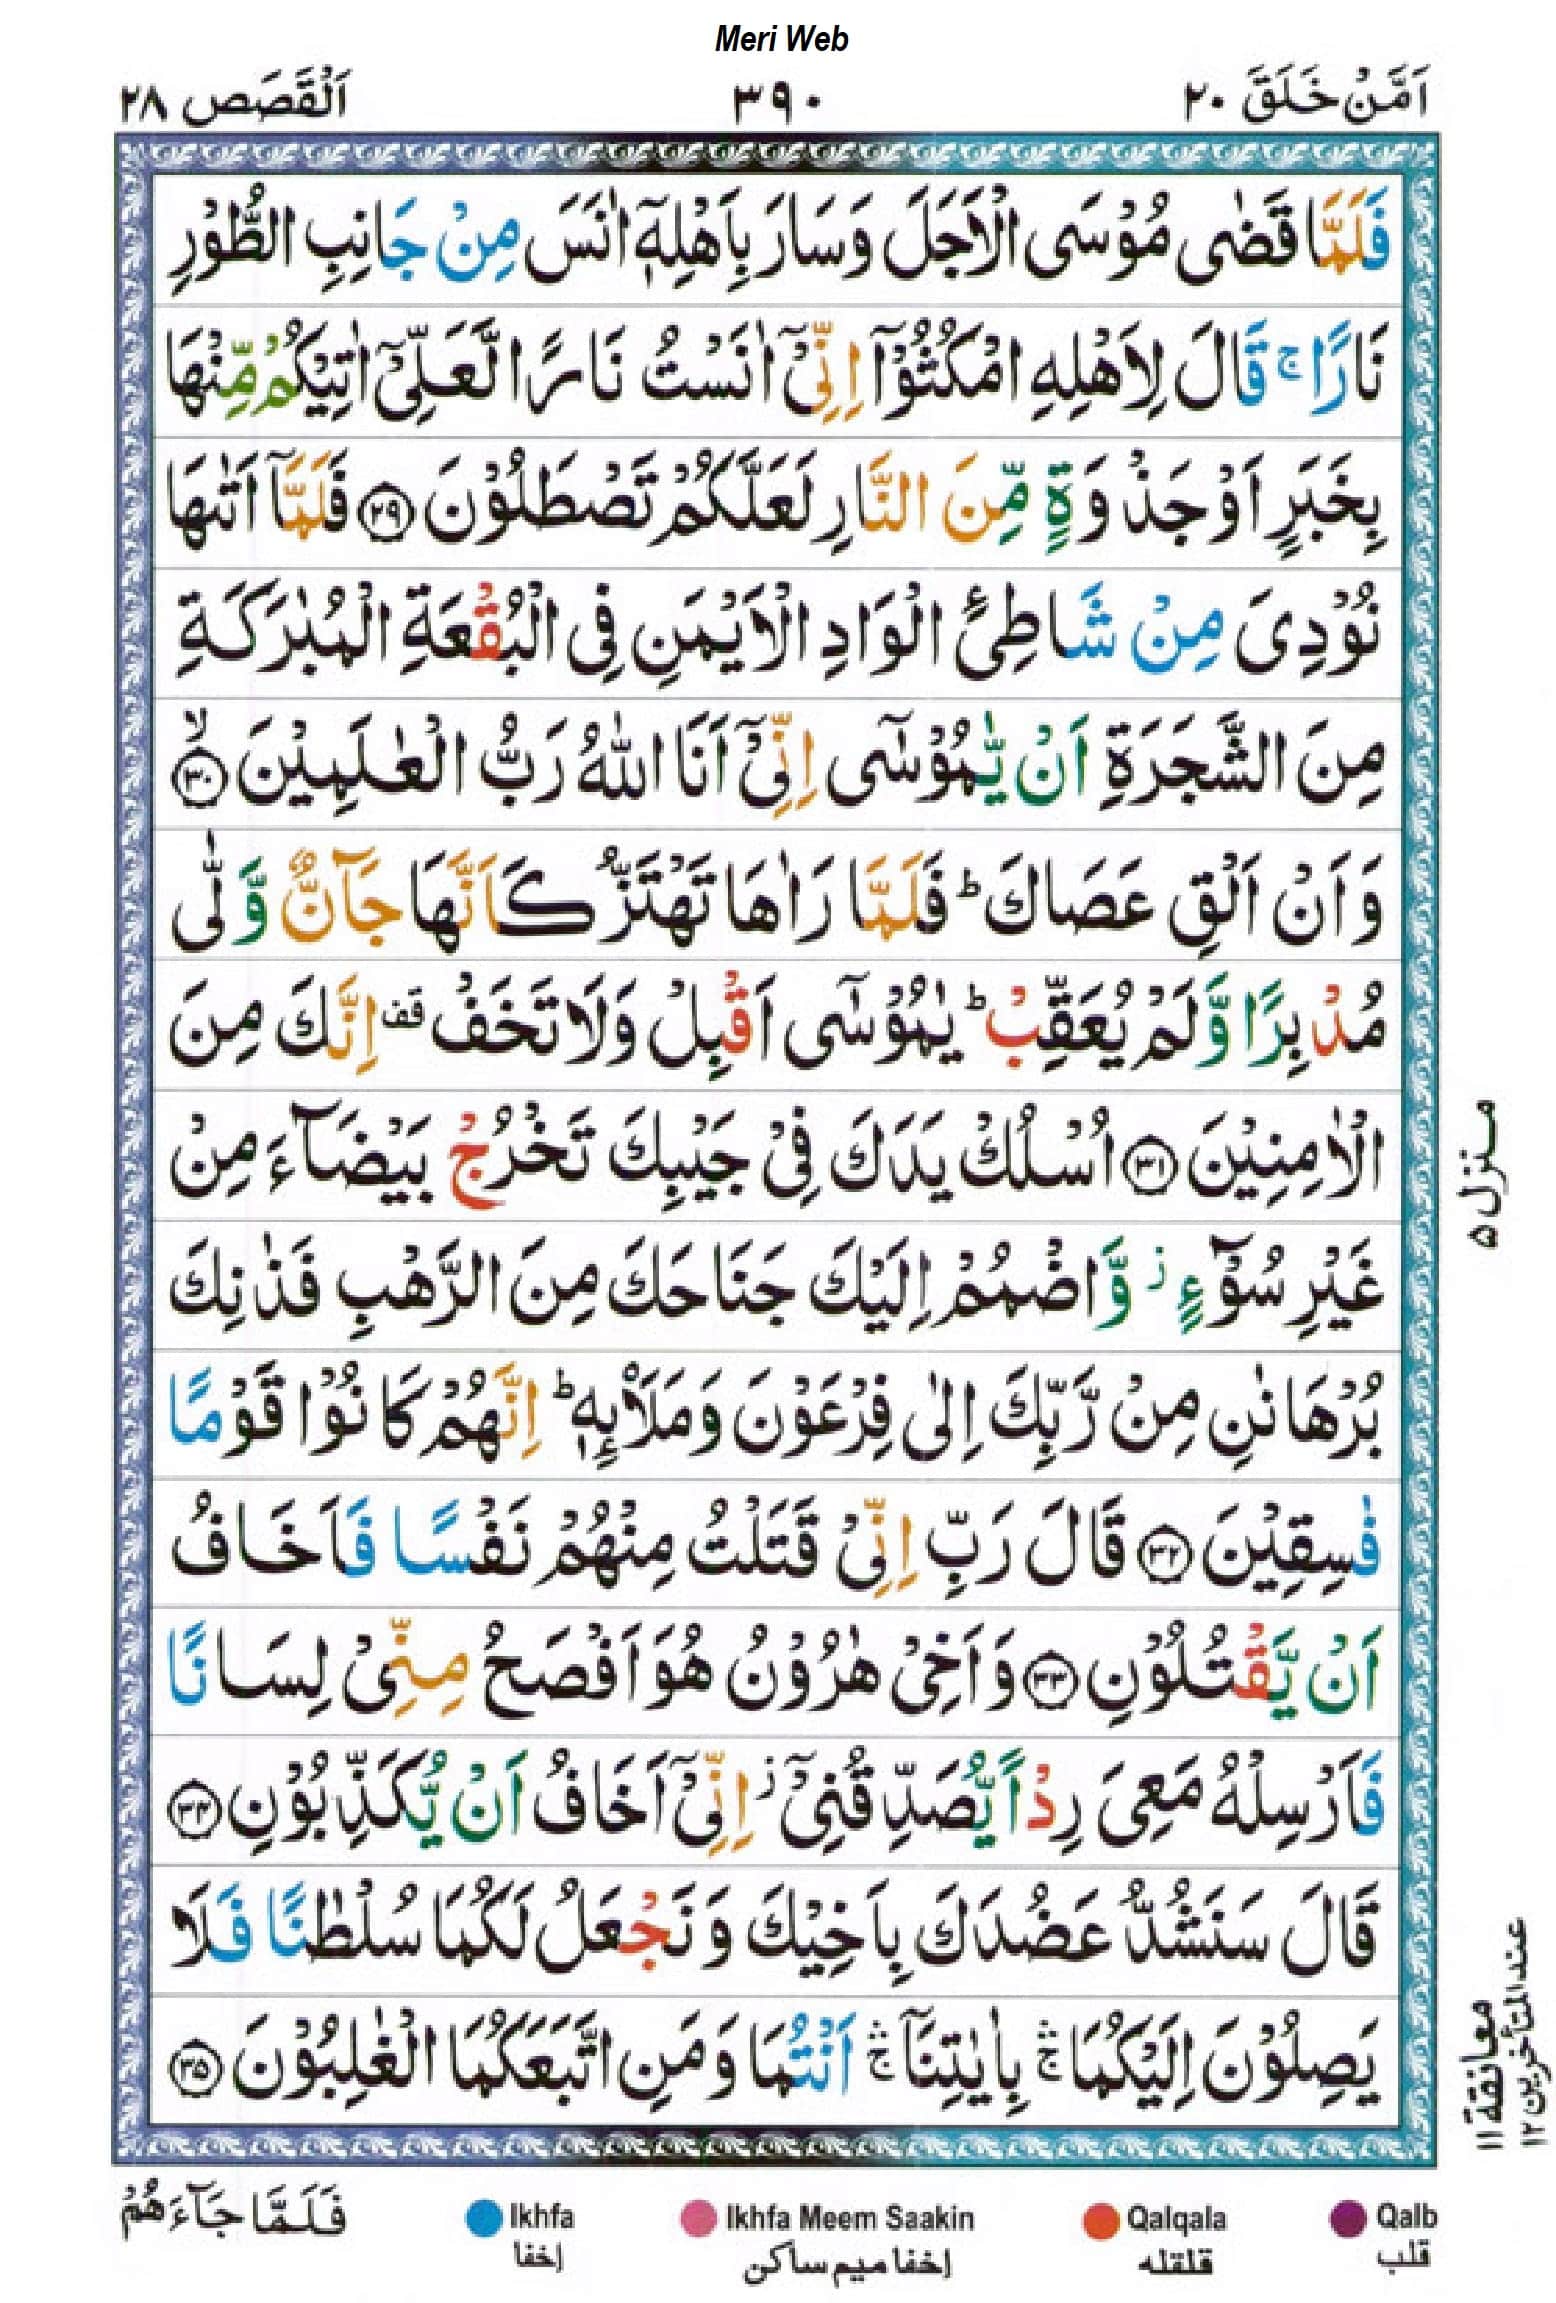 Meri Web
اَمَّنْ خَلَقَ ٢٠ ٣٩٠ اَلْقَصَص ٢٨
فَلَمَّا قَضٰى مُوْسَى الْاَجَلَ وَسَارَ بِاَهْلِهٖۤ اٰنَسَ مِنْ جَانِبِ الطُّوْرِ
نَارًا ۚ قَالَ لِاَهْلِهِ امْكُثُوْۤا اِنِّیْۤ اٰنَسْتُ نَارًا لَّعَلِّیْۤ اٰتِیْكُمْ مِّنْهَا
بِخَبَرٍ اَوْ جَذْوَةٍ مِّنَ النَّارِ لَعَلَّكُمْ تَصْطَلُوْنَ ﴿٢٩﴾ فَلَمَّاۤ اَتٰىهَا
نُوْدِیَ مِنْ شَاطِئِ الْوَادِ الْاَیْمَنِ فِی الْبُقْعَةِ الْمُبٰرَكَةِ
مِنَ الشَّجَرَةِ اَنْ یّٰمُوْسٰۤى اِنِّیْۤ اَنَا اللّٰهُ رَبُّ الْعٰلَمِیْنَ ۙ﴿٣٠﴾
وَ اَنْ اَلْقِ عَصَاكَ ؕ فَلَمَّا رَاٰهَا تَهْتَزُّ كَاَنَّهَا جَآنٌّ وَّلّٰى
مُدْبِرًا وَّ لَمْ یُعَقِّبْ ؕ یٰمُوْسٰۤى اَقْبِلْ وَلَا تَخَفْ ۫ اِنَّكَ مِنَ
الْاٰمِنِیْنَ ﴿٣١﴾ اُسْلُكْ یَدَكَ فِیْ جَیْبِكَ تَخْرُجْ بَیْضَآءَ مِنْ
غَیْرِ سُوْٓءٍ ؗ وَّ اضْمُمْ اِلَیْكَ جَنَاحَكَ مِنَ الرَّهْبِ فَذٰنِكَ
بُرْهَانٰنِ مِنْ رَّبِّكَ اِلٰى فِرْعَوْنَ وَمَلَاۡىِٕهٖ ؕ اِنَّهُمْ كَانُوْا قَوْمًا
فٰسِقِیْنَ ﴿٣٢﴾ قَالَ رَبِّ اِنِّیْ قَتَلْتُ مِنْهُمْ نَفْسًا فَاَخَافُ
اَنْ یَّقْتُلُوْنِ ﴿٣٣﴾ وَ اَخِیْ هٰرُوْنُ هُوَ اَفْصَحُ مِنِّیْ لِسَانًا
فَاَرْسِلْهُ مَعِیَ رِدْاً یُّصَدِّقُنِیْۤ ؗ اِنِّیْۤ اَخَافُ اَنْ یُّكَذِّبُوْنِ ﴿٣٤﴾
قَالَ سَنَشُدُّ عَضُدَكَ بِاَخِیْكَ وَ نَجْعَلُ لَكُمَا سُلْطٰنًا فَلَا
یَصِلُوْنَ اِلَیْكُمَا ۛۚ بِاٰیٰتِنَاۤ ۛۚ اَنْتُمَا وَ مَنِ اتَّبَعَكُمَا الْغٰلِبُوْنَ ﴿٣٥﴾
منزل ۵
معانقة ١١
عند المتأخرين ١٢
فَلَمَّا جَآءَهُمْ
Ikhfa Ikhfa Meem Saakin Qalqala Qalb
إخفا إخفا میم ساکن قلقله قلب